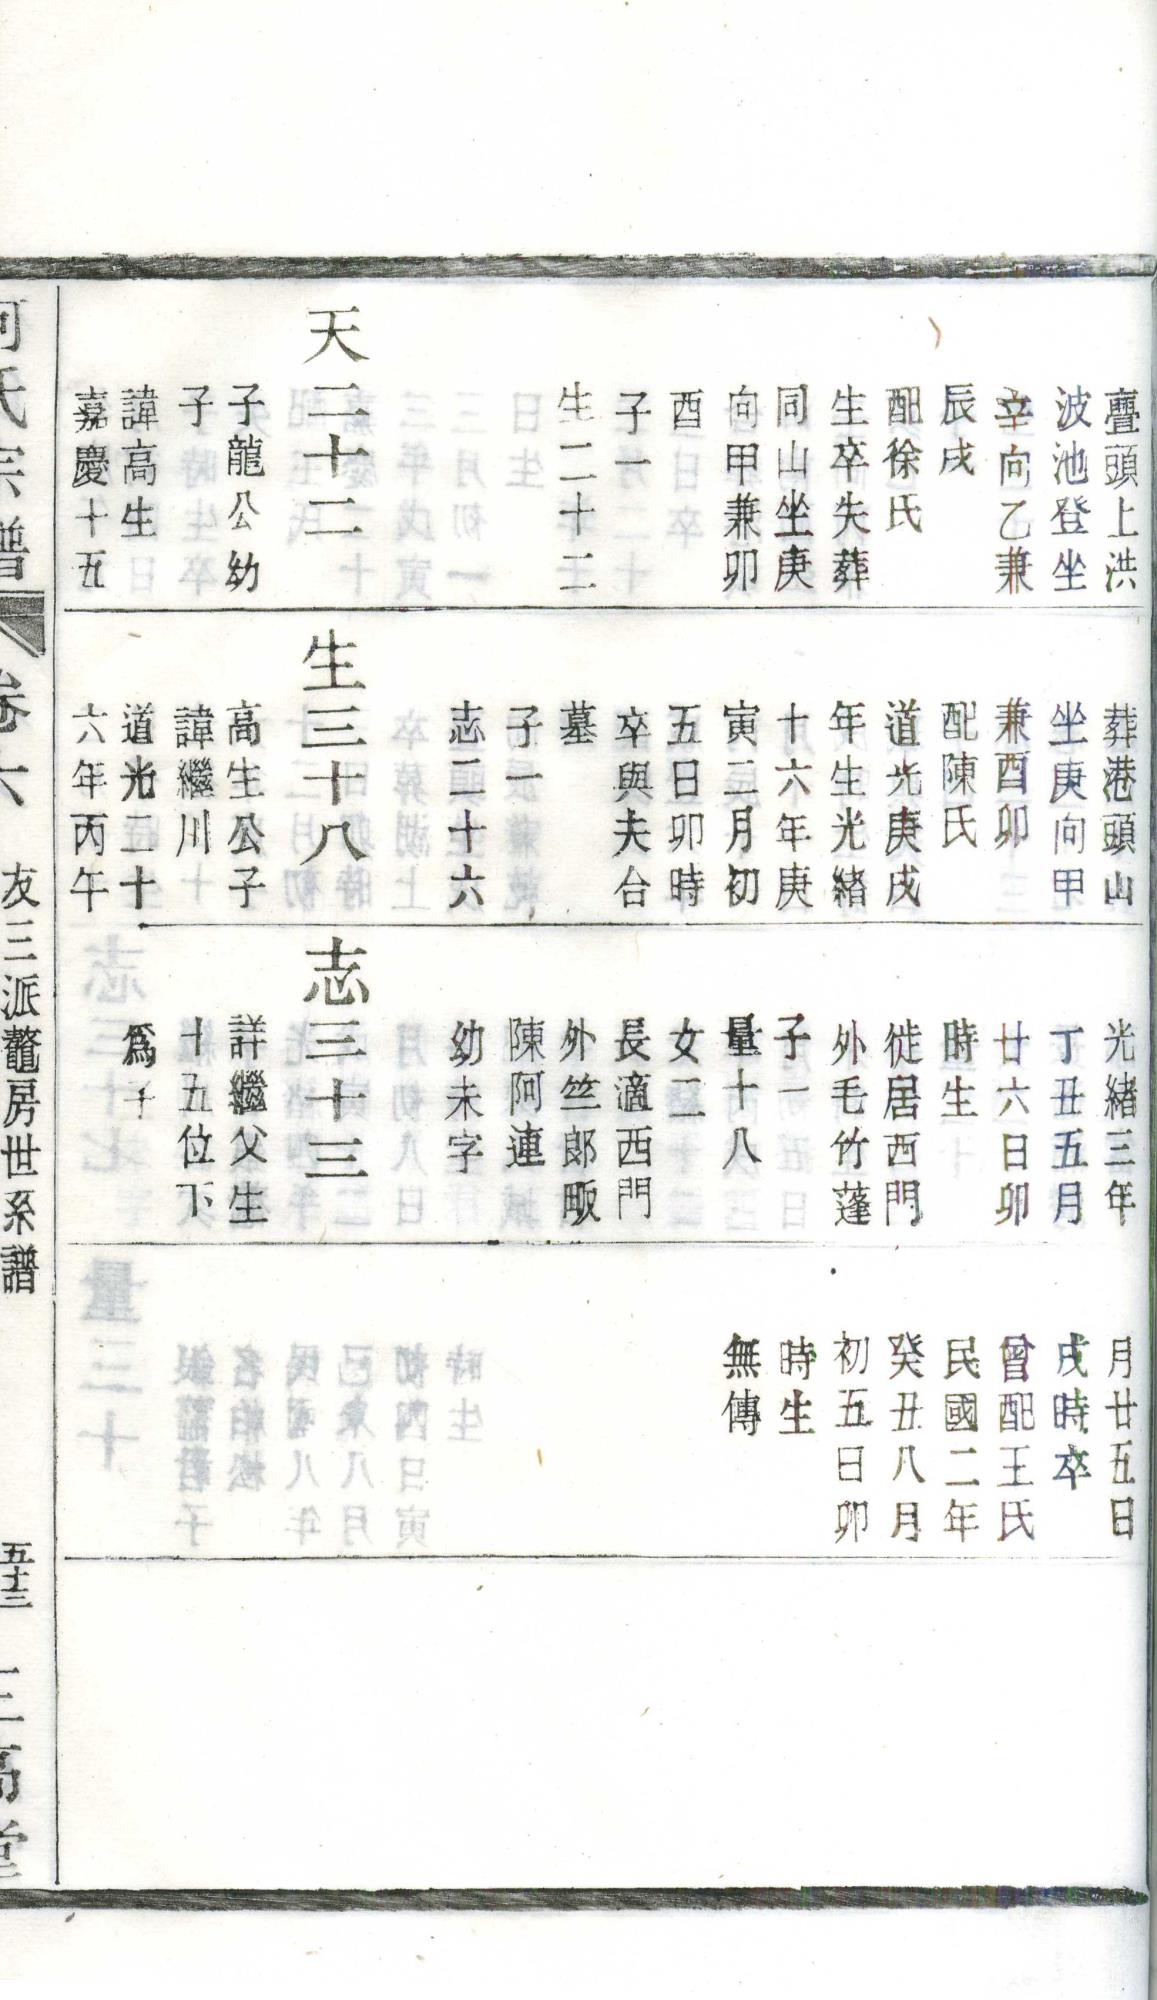 疊頭上洪
波池登坐
辛向乙兼
辰戌
配徐氏
生卒失葬
同山坐庚
向甲兼卯
酉
子一
生二十二
天二十二
子龍公幼
子
諱高生
嘉慶十五
葬港頭山
坐庚向甲
兼酉卯
配陳氏
道光庚戌
年生光緒
十六年庚
寅二月初
五日卯時
卒與夫合
墓
子一
志二十六
生三十八
高生公子
諱繼川
道光二十
六年丙午
光緒三年
丁丑五月
廿六日卯
時生
徙居西門
外毛竹蓬
子一
量十八
女二
長適西門
外竺郎畈
陳阿連
幼未字
志三十三
詳繼父生
十五位下
爲子
月廿五日
戌時卒
曾配王氏
民國二年
癸丑八月
初五日卯
時生
無傳
何氏宗譜
卷六
友三派鼇房世系譜
五十三
三高堂